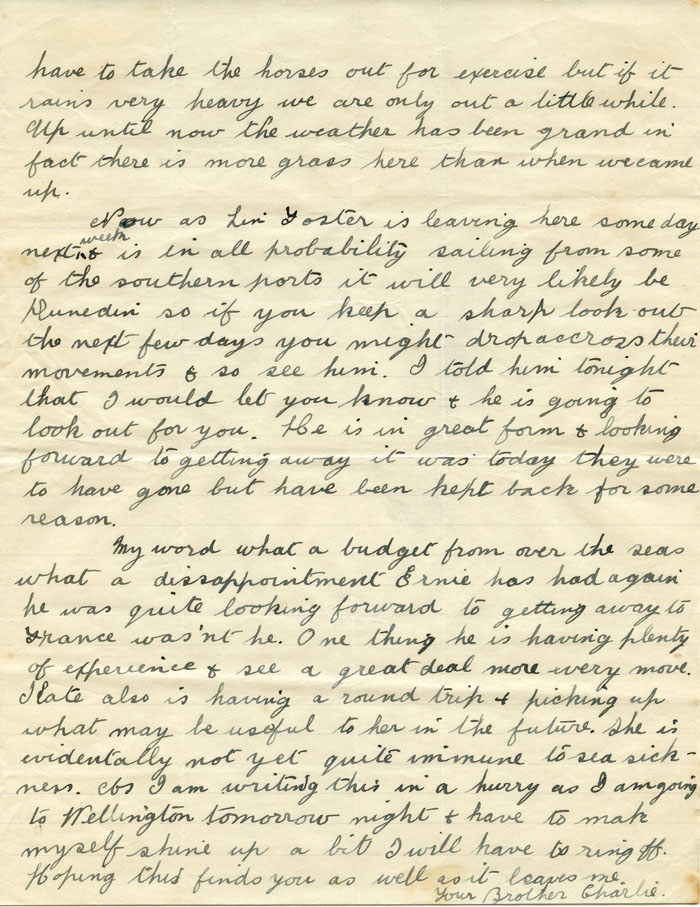 have to take the horses out for exercise but if it
rains very heavy we are only out a little while.
Up until now the weather has been grand in
fact there is more grass here than when we came
up.
Now as Len Foster is leaving here some day
next week & is in all probability sailing from some
of the southern ports it will very likely be
Dunedin so if you keep a sharp look out
the next few days you might drop accross their
movements & so see him. I told him tonight
that I would let you know & he is going to
look out for you. He is in great form & looking
forward to getting away it was today they were
to have gone but have been kept back for some
reason.
My word what a budget from over the seas
what a dissappointment Ernie has had again
he was quite looking forward to getting away to
France was'nt he. One thing he is having plenty
of experience & see a great deal more every move.
Kate also is having a round trip & picking up
what may be useful to her in the future. She is
evidentally not yet quite immune to sea sick-
ness. As I am writing this in a hurry as I am going
to Wellington tomorrow night & have to mak
myself shine up a bit I will have to ring off.
Hoping this finds you as well as it leaves me
Your Brother Charlie.